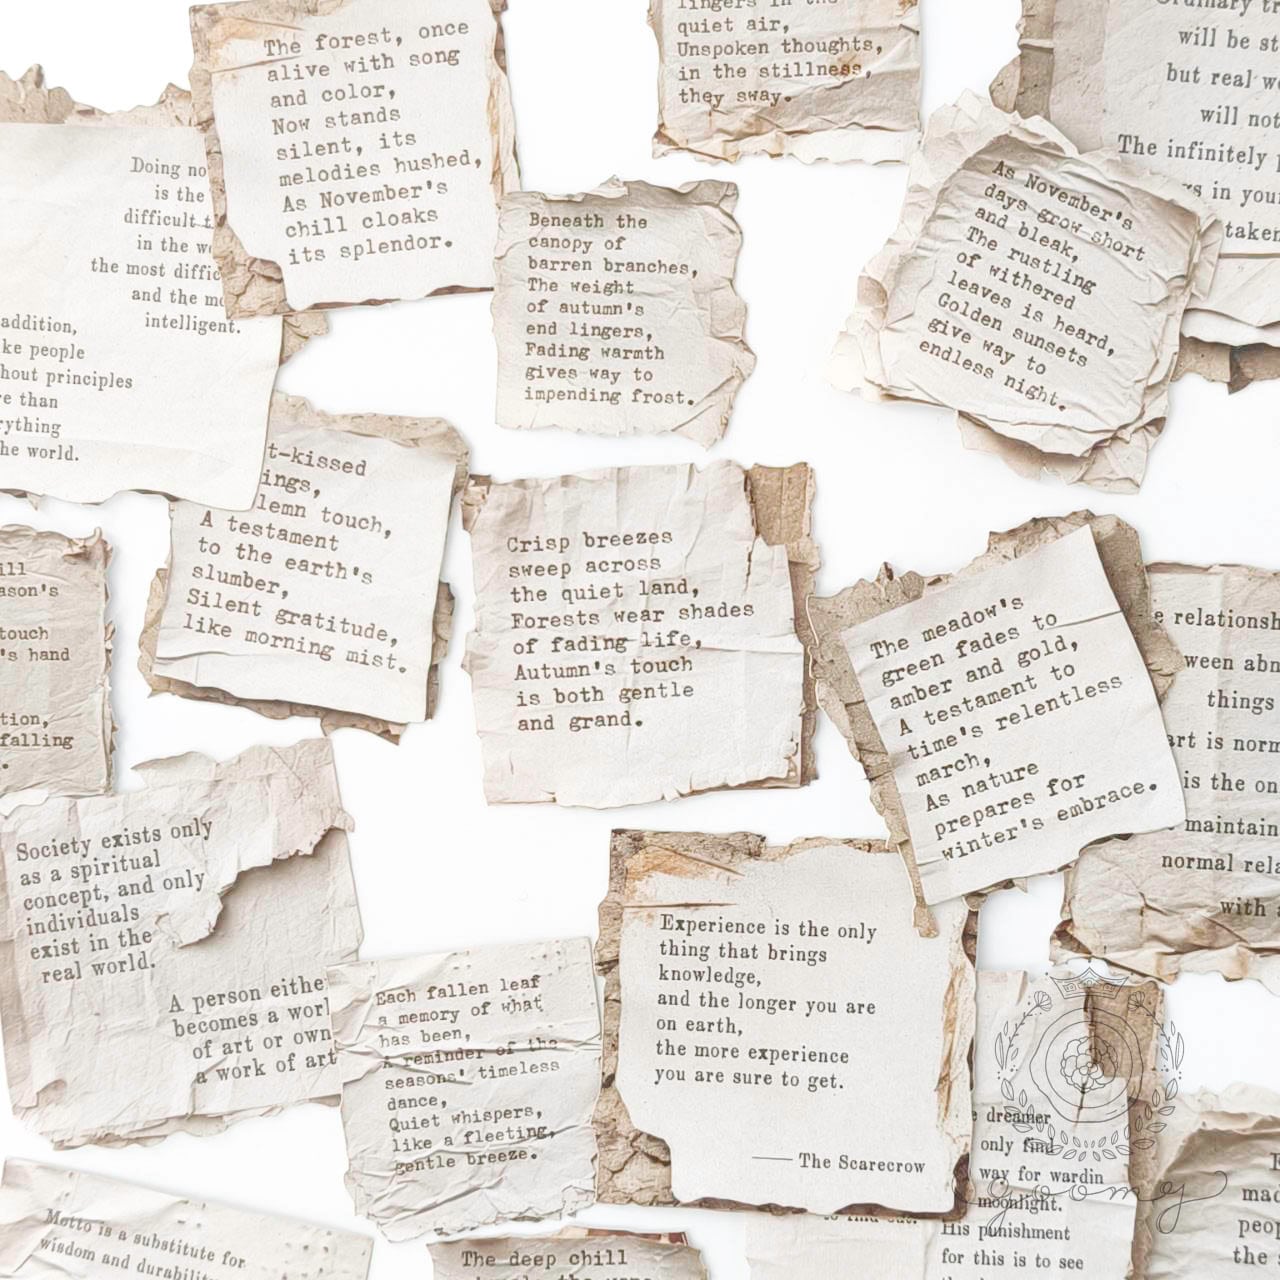 The forest, once
alive with song
and color,
Now stands
silent, its
melodies hushed,
As November's
chill cloaks
its splendor.
quiet air,
Unspoken thoughts,
in the stillness,
they sway.
will be
but real
will not
The infinitely
in
taken
Doing
is the
difficult
in the
the most
and the
intelligent.
addition,
people
principles
than
the world.
Beneath the
canopy of
barren branches,
The weight
of autumn's
end lingers,
Fading warmth
gives way to
impending frost.
As November's
days grow short
and bleak,
The rustling
of withered
leaves is heard,
Golden sunsets
give way to
endless night.
touch,
A testament
to the earth's
slumber,
Silent gratitude,
like morning mist.
touch
hand
falling
Crisp breezes
sweep across
the quiet land,
Forests wear shades
of fading life,
Autumn's touch
is both gentle
and grand.
The meadow's
green fades to
amber and gold,
A testament to
time's relentless
march,
As nature
prepares for
winter's embrace.
things
is norm
is the
maintain
normal
with
Society exists only
as a spiritual
concept, and only
individuals
exist in the
real world.
A person eithe
becomes a worl
of art or own
a work of art
Each fallen leaf
a memory of what
has been,
A reminder of the
seasons' timeless
dance,
Quiet whispers,
like a fleeting,
gentle breeze.
Experience is the only
thing that brings
knowledge,
and the longer you are
on earth,
the more experience
you are sure to get.
The Scarecrow
dreamer
only find
way for wardin
moonlight.
His punishment
for this is to see
goomoj
Motto is a substitute for
wisdom and
The deep chill
the